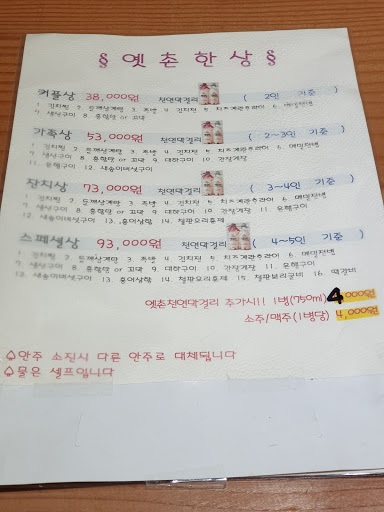 § 옛촌한상 §
커플상 38,000원 천연막걸리 ( 2인 기준 )
1 김치찜 2 들깨삼계탕 3 족발 4 김치전 5 치즈계란후라이 6 메밀전병
7 생선구이 8 홍합탕 or 꼬막
가족상 53,000원 천연막걸리 ( 2~3인 기준 )
1 김치찜 2 들깨삼계탕 3 족발 4 김치전 5 치즈계란후라이 6 메밀전병
7 생선구이 8 홍합탕 or 꼬막 9 대하구이 10 간장게장
11. 은행구이 12. 새송이버섯구이
잔치상 73,000원 천연막걸리 ( 3~4인 기준 )
1 김치찜 2 들깨삼계탕 3 족발 4 김치전 5 치즈계란후라이 6 메밀전병
7 생선구이 8 홍합탕 or 꼬막 9 대하구이 10 간장게장 11. 은행구이
12. 새송이버섯구이 13. 홍어삼합 14. 철판요리훈제
스페셜상 93,000원 천연막걸리 ( 4~5인 기준 )
1 김치찜 2 들깨삼계탕 3 족발 4 김치전 5 치즈계란후라이 6 메밀전병
7 생선구이 8 홍합탕 or 꼬막 9 대하구이 10 간장게장 11. 은행구이
12. 새송이버섯구이 13. 홍어삼합 14. 철판요리훈제 15. 철판보리굴비 16. 떡갈비
옛촌천연막걸리 추가시!! 1병(750ml) 4,000원
소주/맥주(1병당) 4,000원
♤안주 소진시 다른 안주로 대체됩니다
♤물은 셀프입니다